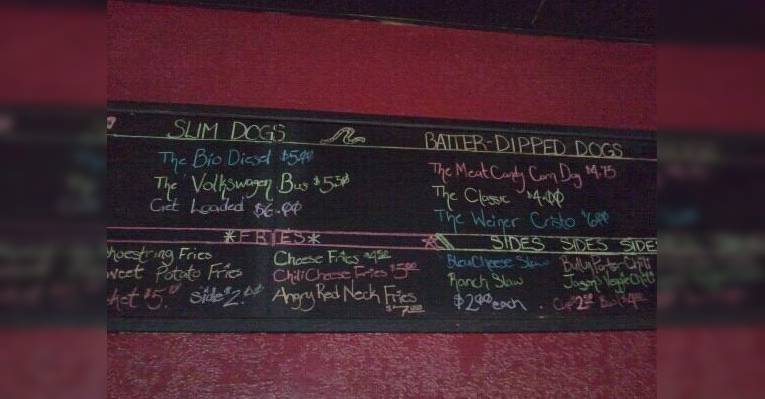 SLIM DOGS
The Bio Diesel $5.00
The Volkswagen Bus $5.50
Get Loaded $6.00
BATTER-DIPPED DOGS
The Meat Candy Corn Dog $4.75
The Classic $4.00
The Weiner Cristo $6.00
*FRIES*
hoestring Fries
weet Potato Fries
ket $5. side $2.00
Cheese Fries $4.50
Chili Cheese Fries $5.00
Angry Red Neck Fries
$7.00
SIDES SIDES SIDES
BleuCheese Slaw
Ranch Slaw
$2.00 each